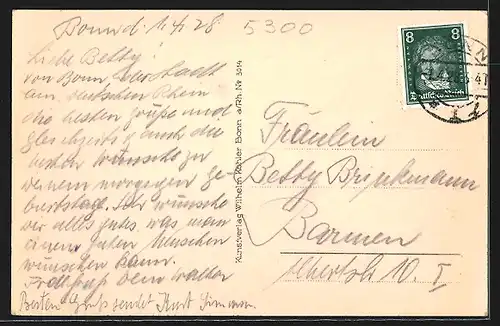 Bonn d. 1.4.28
5300
Liebe Betty!
Von Bonn, der Stadt
am deutschen Rhein
die besten Grüße und
gleichzeitig auch die
besten Wünsche zu
deinem morgigen Ge-
burtstag. Ich wünsche
dir alles gutes, was man
einem guten Menschen
wünschen kann.
dein Walter
Besten Gruß sendet Kurt
Kunstverlag Wilhelm Köhler Bonn a/Rh. Nr. 3014
8 8
Deutsches Reich
BONN
Fräulein
Betty Brinkmann
Barmen
Albertstr 10. I